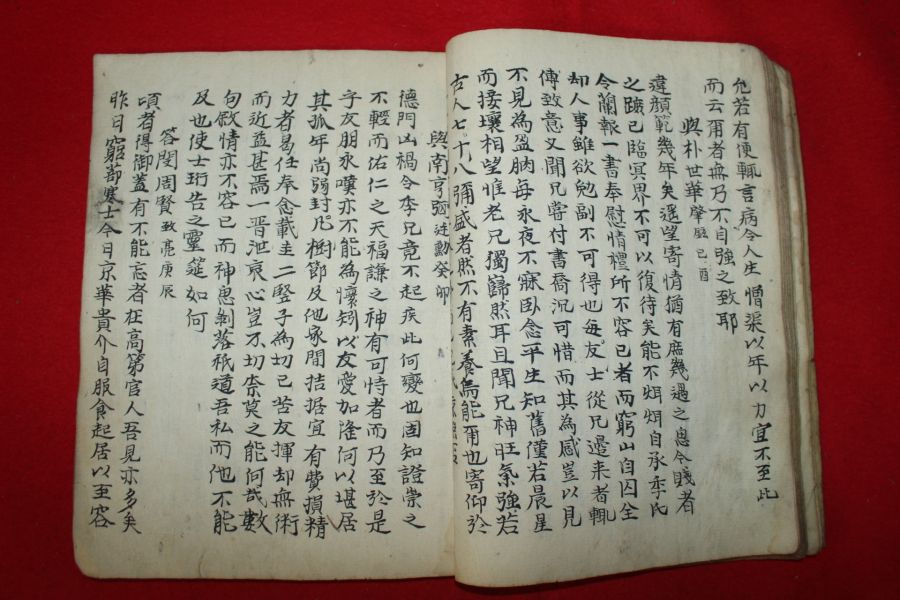 允若有便輒言病令人生憎渠以年以力宜不至此
而云爾者無乃不自强之致耶
與朴世華肇 己酉
違顔範幾年矣遙望寄情猶有庶幾過之息今賤者
之蹤已臨冥界不可以復待矣能不烱烱自承李氏
令蘭報一書奉慰情禮所不容已者而窮山自囚全
却人事雖欲勉副不可得也每友士從兄邊来者輒
傳致意又聞兄嘗付書喬况可惜而其為感豈以見
不見為盈朒每永夜不寐臥念平生知舊僅若晨星
而接壤相望惟老兄獨巋然耳且聞兄神旺氣强若
古人七十八彌盛者然不有素養焉能爾也寄仰於
與南亨 廷勳 癸卯
德門凶禍令李兄竟不起疾此何變也固知證崇之
不輕而佑仁之天福謙之神有可恃者而乃至於是
字友朋永嘆亦不能為懷矧以友愛加隆何以堪居
其孤年尚弱封凡樹節及他象間拮据宜有費損精
力者易任奉念載圭二竪子為切已苦友揮却無術
而近益甚焉一晋泄哀心豈不切柰莫之能何哉數
句敘情亦不容已而神思剝落秪道吾私而他不能
及也使士珩告之靈筵如何
答閔周賢 致亮 庚辰
頃者得御盖有不能忘者在高第官人吾見亦多矣
昨日窮蔀寒士今日京華貴介自服食起居以至容